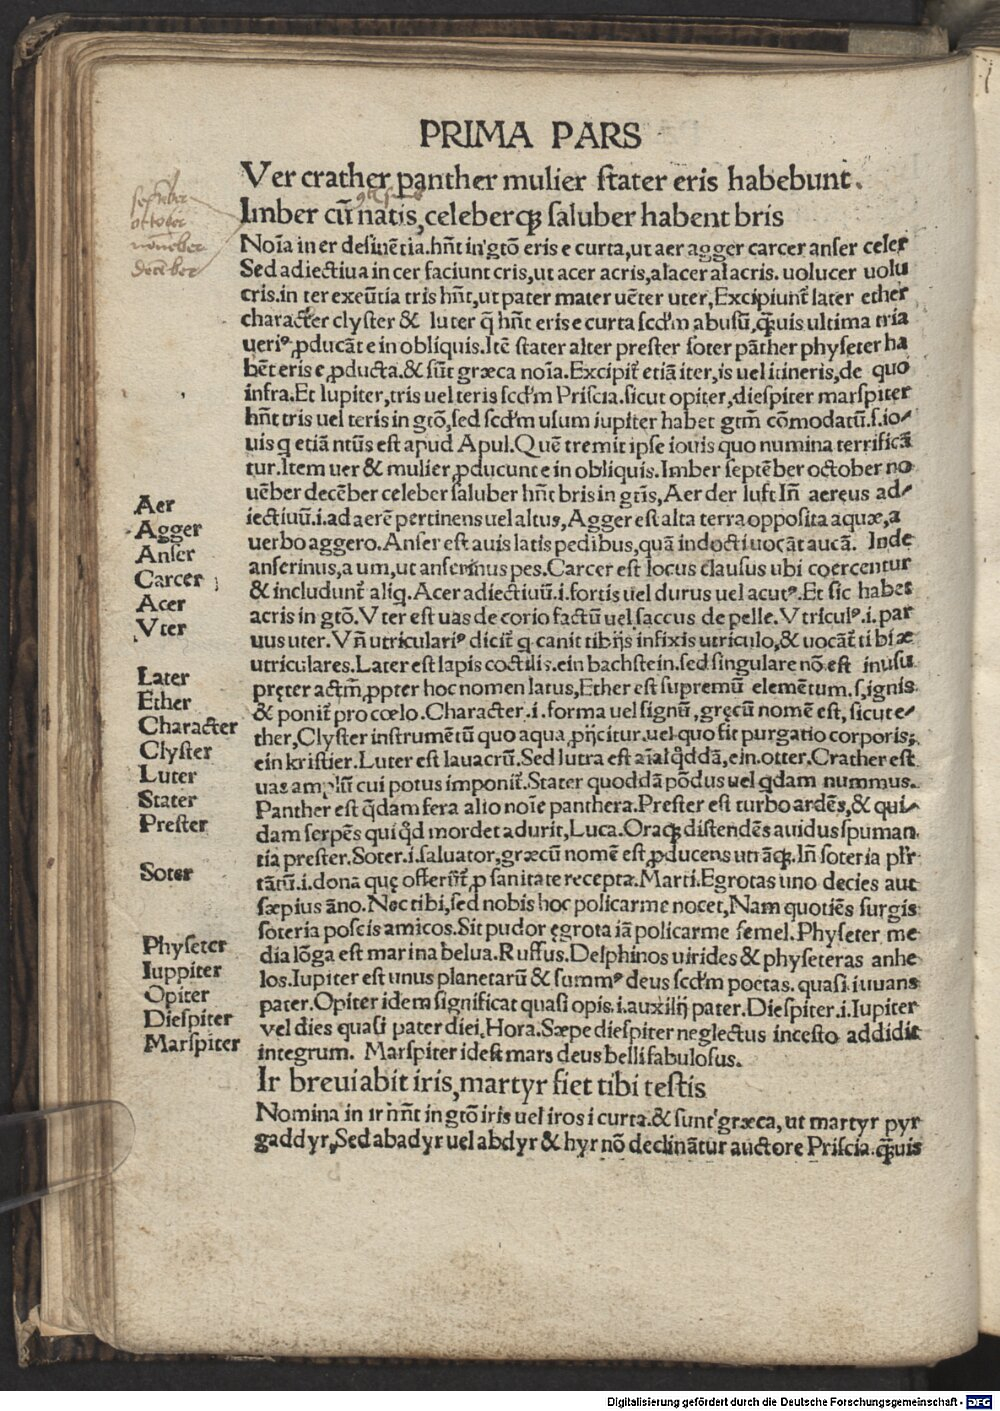 PRIMA PARS
Ver crather panther mulier ſtater eris habebunt.
Imber cū natis, celeberq; ſaluber habent bris
ſeptēber
october
nouēber
decēber
Noīa in er deſinētia.hn̄t in gtō eris e curta,ut aer agger carcer anſer celer
Sed adiectiua in cer faciunt cris,ut acer acris,alacer alacris. uolucer uolu
cris.in ter exeūtia tris hn̄t,ut pater mater uēter uter,Excipiunt̄ later ether
character clyſter & luter q̄ hn̄t eris e curta ſcd̄m abuſū,q̄uis ultima tria
ueriꝰ ꝓducāt e in obliquis.Itē ſtater alter preſter ſoter pāther phyſeter ha
bēt eris e ꝓducta.& ſūt græca noīa.Excipit̄ etiā iter,is uel itineris,de quo
infra.Et Iupiter,tris uel teris ſcd̄m Priſcia.ſicut opiter,dieſpiter marſpiter
hn̄t tris uel teris in gtō,ſed ſcd̄m uſum iupiter habet gtm̄ cōmodatū.ſ.io⸗
uis q etiā ntūs eſt apud Apul.Quē tremit ipſe iouis quo numina terrificā
tur.Item uer & mulier ꝓducunt e in obliquis.Imber ſeptēber october no
uēber decēber celeber ſaluber hn̄t bris in gtīs,Aer der luft In̄ aereus ad⸗
iectiuū.i.ad aerē pertinens uel altus,Agger eſt alta terra oppoſita aquæ,a
uerbo aggero.Anſer eſt auis latis pedibus,quā indocti uocāt aucā. Inde
anſerinus,a um,ut anſerinus pes.Carcer eſt locus clauſus ubi coercentur
& includunt̄ aliq.Acer adiectiuū.i.fortis uel durus uel acutꝰ.Et ſic habet
acris in gtō.Vter eſt uas de corio factū uel ſaccus de pelle.Vtriculꝰ.i.par
uus uter.Vn̄ utriculariꝰ dicit̄ q canit tibijs infixis utriculo,& uocāt̄ tibiæ
utriculares.Later eſt lapis coctilis.ein bachſtein.ſed ſingulare nō eſt in uſu
pręter actm̄ ꝓpter hoc nomen latus,Ether eſt ſupremū elemētum.ſ.ignis.
& ponit̄ pro cœlo.Character.i.forma uel ſignū,gręcū nomē eſt,ſicut e⸗
ther,Clyſter inſtrumētū quo aqua ꝓijcitur.uel quo fit purgatio corporis;
ein kriſtier.Luter eſt lauacrū.Sed lutra eſt aīal qd̄dā,ein.otter.Crather eſt
uas amplū cui potus imponit̄.Stater quoddā pōdus uel qdam nummus.
Panther eſt q̄dam fera alio noīe panthera.Preſter eſt turbo ardēs,& qui⸗
dam ſerpēs qui qd̄ mordet adurit,Luca.Oraq; diſtendēs auidus ſpuman
tia preſter.Soter.i.ſaluator,græcū nomē eſt,ꝓducens utrāq;.In̄ ſoteria plr̄
tātū.i.dona quę offerūt̄ ꝓ ſanitate recepta.Marti.Egrotas uno decies aut
ſæpius āno.Nec tibi,ſed nobis hoc policarme nocet,Nam quotiēs ſurgis
ſoteria poſcis amicos.Sit pudor ęgrota iā policarme ſemel.Phyſeter me
dia lōga eſt marina belua.Ruffus.Delphinos uirides & phyſeteras anhe
los.Iupiter eſt unus planetarū & ſummꝰ deus ſcd̄m poetas. quaſi iuuans
pater.Opiter idem ſignificat quaſi opis.i.auxilij pater.Dieſpiter.i.Iupiter
vel dies quaſi pater diei.Hora.Sæpe dieſpiter neglectus inceſto addidit
integrum. Marſpiter ideſt mars deus belli fabuloſus.
Aer
Agger
Anſer
Carcer
Acer
Vter
Later
Ether
Character
Clyſter
Luter
Stater
Preſter
Soter
Phyſeter
Iuppiter
Opiter
Dieſpiter
Marſpiter
Ir breuiabit iris,martyr fiet tibi teſtis
Nomina in ir hn̄t in gtō iris uel iros i curta.& ſunt græca, ut martyr pyr
gaddyr,Sed abadyr uel abdyr & hyr nō declināntur auctore Priſcia.q̄uis
Digitalisierung gefördert durch die Deutsche Forschungsgemeinschaft - DFG